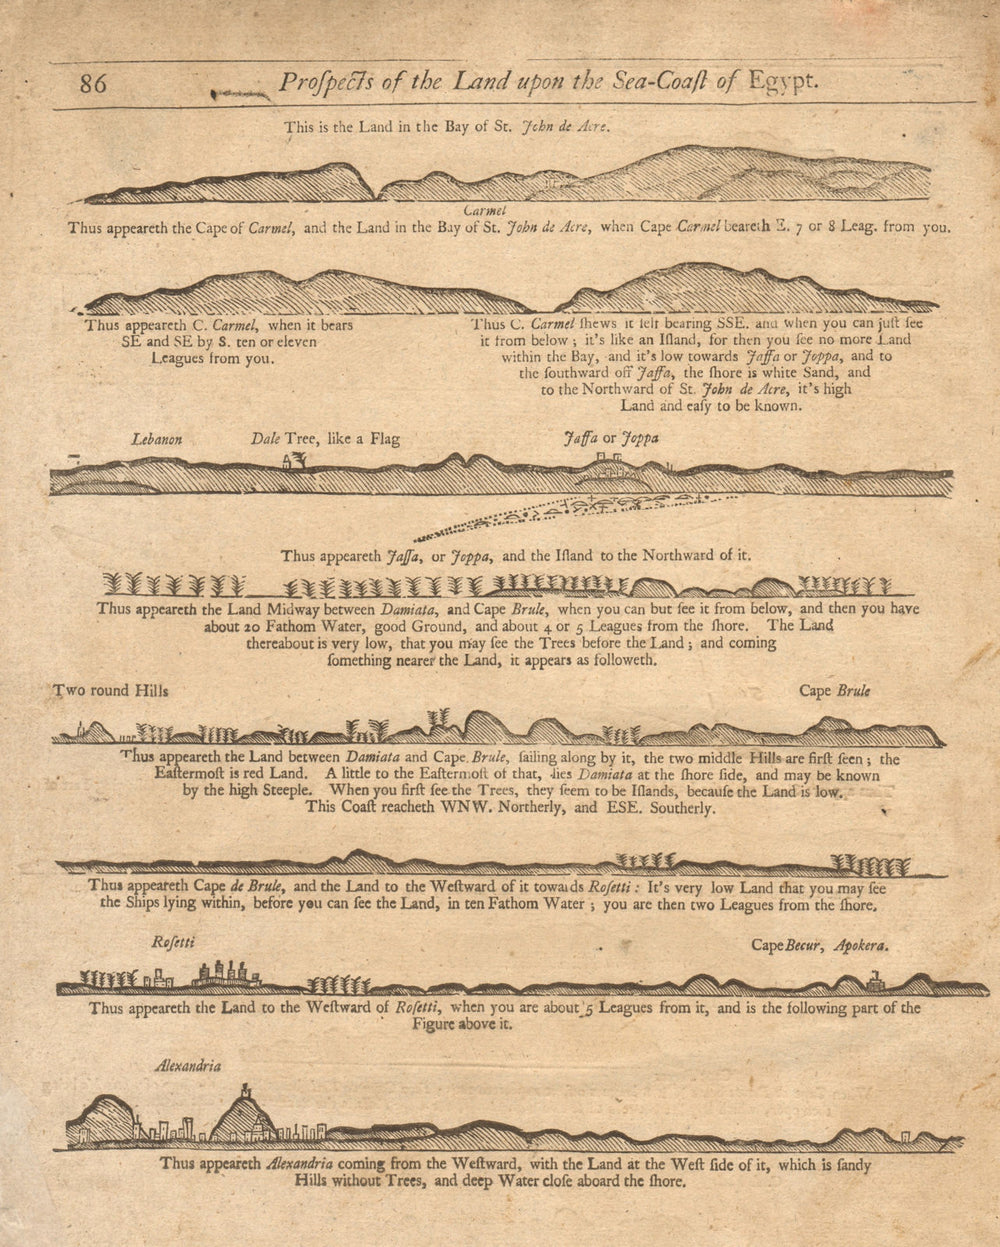 86 Proſpects of the Land upon the Sea-Coaſt of Egypt.
This is the Land in the Bay of St. John de Acre.
Carmel
Thus appeareth the Cape of Carmel, and the Land in the Bay of St. John de Acre, when Cape Carmel beareth E. 7 or 8 Leag. from you.
Thus appeareth C. Carmel, when it bears
SE and SE by S. ten or eleven
Leagues from you.
Thus C. Carmel ſhews it ſelf bearing SSE. and when you can juſt ſee
it from below; it's like an Iſland, for then you ſee no more Land
within the Bay, and it's low towards Jaffa or Joppa, and to
the ſouthward off Jaffa, the ſhore is white Sand, and
to the Northward of St. John de Acre, it's high
Land and eaſy to be known.
Lebanon Dale Tree, like a Flag Jaffa or Joppa
Thus appeareth Jaffa, or Joppa, and the Iſland to the Northward of it.
Thus appeareth the Land Midway between Damiata, and Cape Brule, when you can but ſee it from below, and then you have
about 20 Fathom Water, good Ground, and about 4 or 5 Leagues from the ſhore. The Land
thereabout is very low, that you may ſee the Trees before the Land; and coming
ſomething nearer the Land, it appears as followeth.
Two round Hills Cape Brule
Thus appeareth the Land between Damiata and Cape Brule, ſailing along by it, the two middle Hills are firſt ſeen; the
Eaſtermoſt is red Land. A little to the Eaſtermoſt of that, lies Damiata at the ſhore ſide, and may be known
by the high Steeple. When you firſt ſee the Trees, they ſeem to be Iſlands, becauſe the Land is low.
This Coaſt reacheth WNW. Northerly, and ESE. Southerly.
Thus appeareth Cape de Brule, and the Land to the Weſtward of it towards Roſetti: It's very low Land that you may ſee
the Ships lying within, before you can ſee the Land, in ten Fathom Water; you are then two Leagues from the ſhore.
Roſetti Cape Becur, Apokera.
Thus appeareth the Land to the Weſtward of Roſetti, when you are about 5 Leagues from it, and is the following part of the
Figure above it.
Alexandria
Thus appeareth Alexandria coming from the Weſtward, with the Land at the Weſt ſide of it, which is ſandy
Hills without Trees, and deep Water cloſe aboard the ſhore.